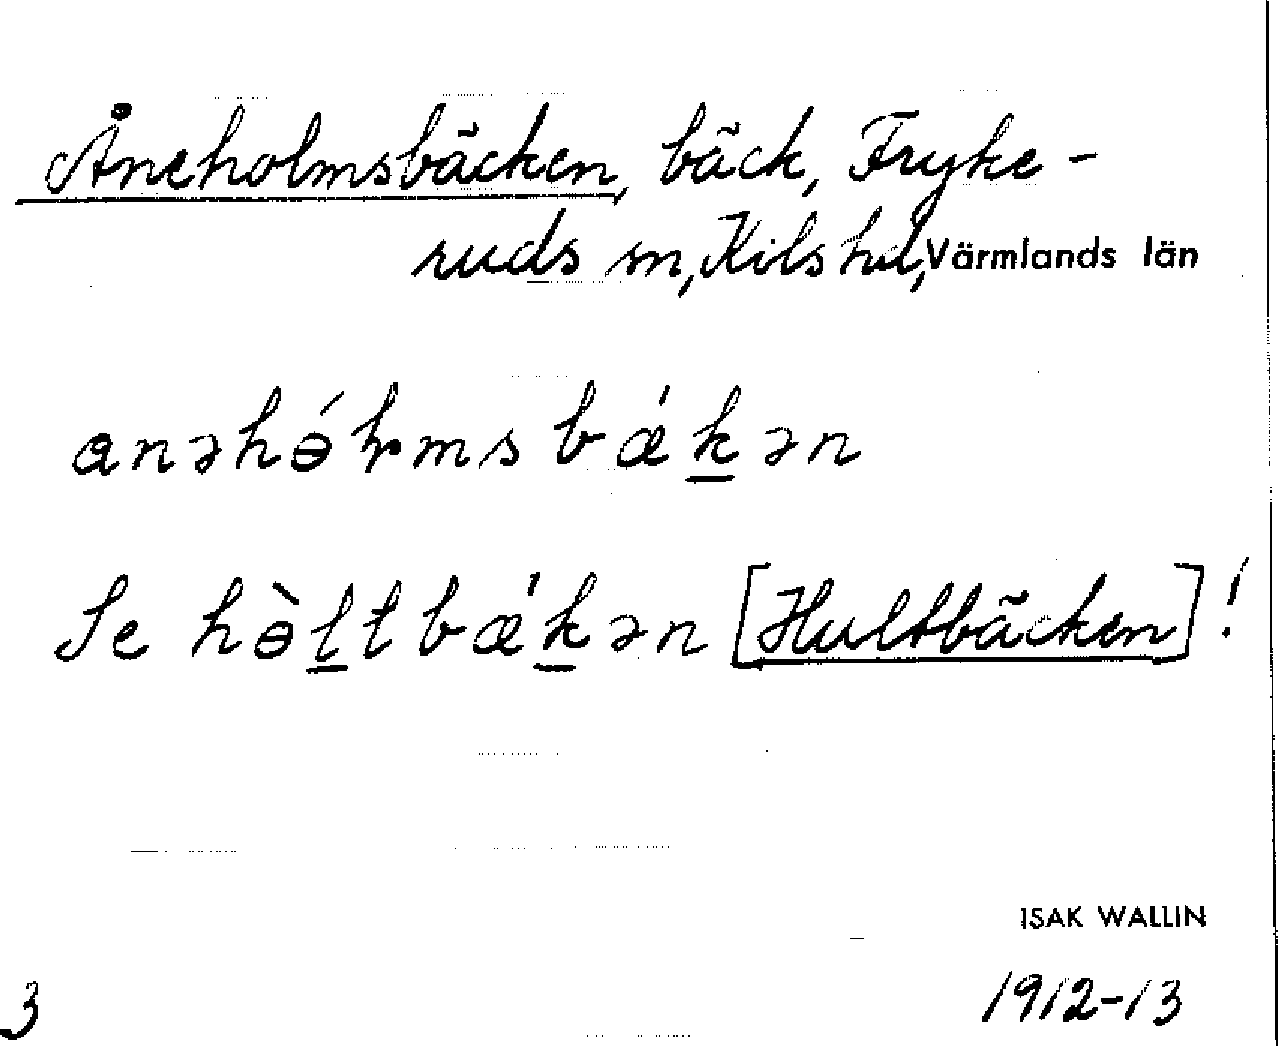 Åneholmsbäcken, bäck, Fryke-
ruds sn, Kils hd, Värmlands län
anəhɵ́ɽmsbǽkən
Se hɵ̀ltbǽkən [Hultbäcken]!
ISAK WALLIN
1912-13
3